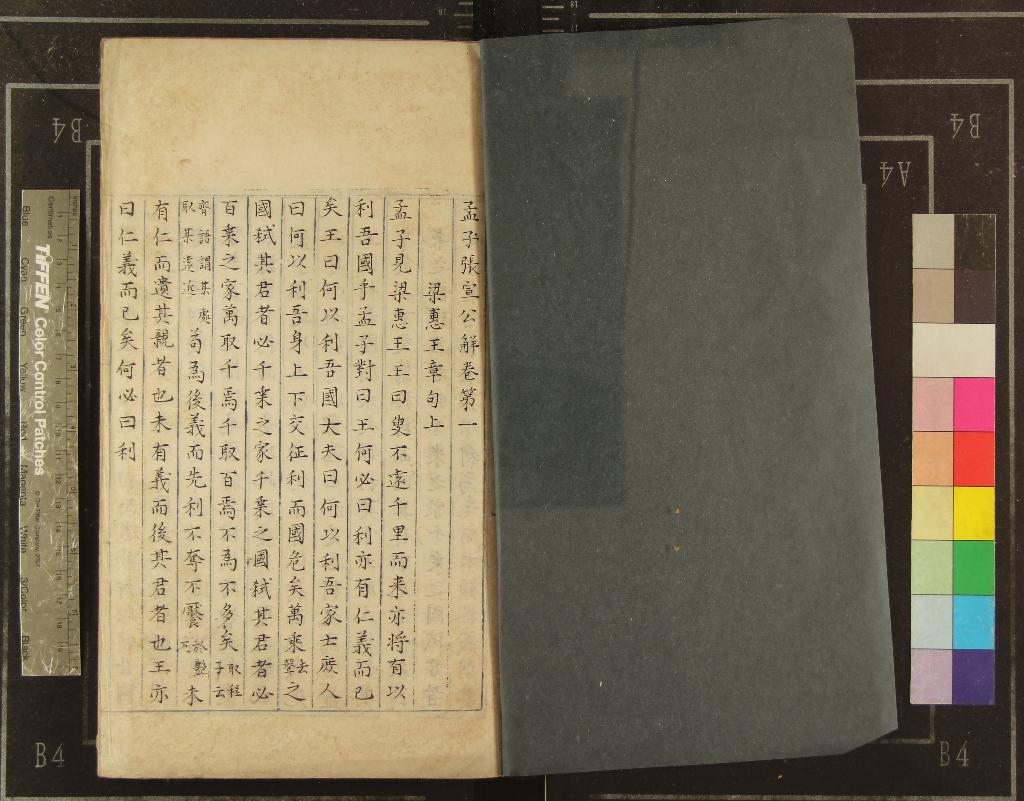 孟子張宣公解卷第一
梁惠王章句上
孟子見梁惠王王曰叟不遠千里而来亦将有以
利吾國乎孟子對曰王何必曰利亦有仁義而已
矣王曰何以利吾國大夫曰何以利吾家士庻人
曰何以利吾身上下交征利而國危矣萬乘去聲之
國弑其君者必千乗之家千乗之國弑其君者必
百乗之家萬取千焉千取百焉不為不多矣取程子云
齊語謂某處取某逺近苟為後義而先利不奪不饜於艷未
有仁而遺其親者也未有義而後其君者也王亦
曰仁義而已矣何必曰利
TIFFEN Color Control Patches
Blue
Cyan
Green
Yellow
Red
Magenta
White
3/Color
Black
Centimetres
B4
B4
A4
B4
B4